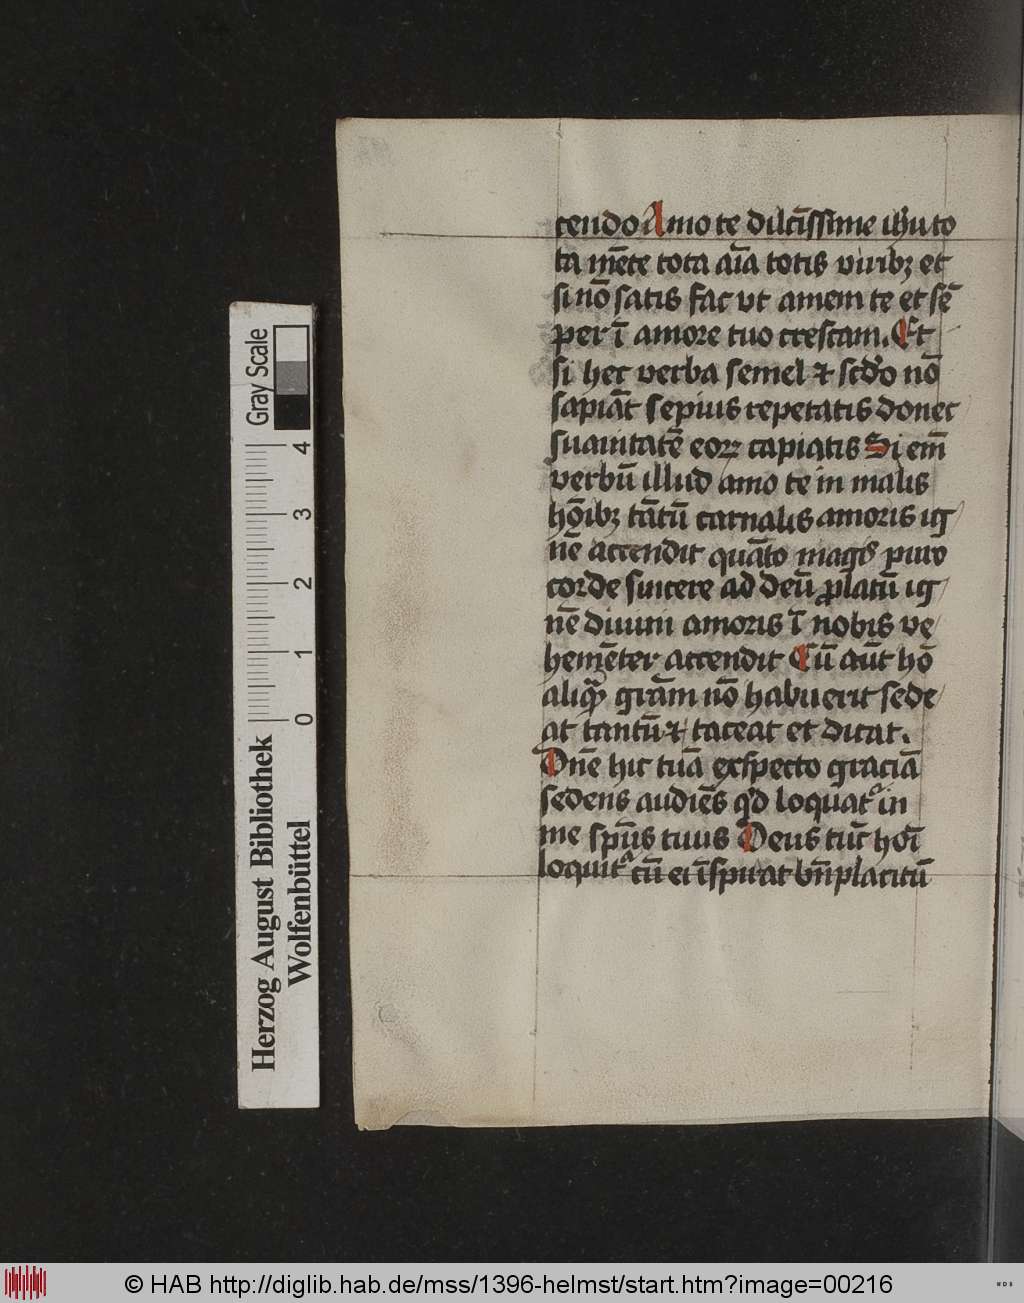 cendo Amo te dilcīssime ihū to
ta mēte tota aīa totis virib⁊ et
si nō satis fac vt amem te et sē
per ī amore tuo crescam. Et
si hec verba semel ⁊ scd̄o nō
sapiāt sepius repetatis donec
suauitatē eoꝝ capiatis Si em̄
verbū illud amo te in malis
hōib⁊ tātū carnalis amoris ig
nē accendit quāto magis puro
corde sincere ad deū ꝓlatū ig
nē diuini amoris ī nobis ve
hemēter accendit Cū aūt hō
aliqꝫ grām nō habuerit sede
at tantū ⁊ taceat et dicat.
Dn̄e hic tuā exspecto graciā
sedens audiēs qd̓ loquat᷑ in
me sp̄us tuus Deus tūc hoī
loquit᷑ cū ei īspirat bn̄placitū
Gray Scale
0 1 2 3 4
Herzog August Bibliothek
Wolfenbüttel
© HAB http://diglib.hab.de/mss/1396-helmst/start.htm?image=00216
WDB